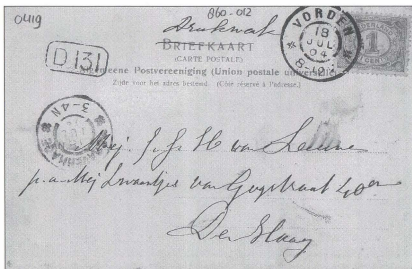 0419
860-012
Drukwerk
D 131
BRIEFKAART
(CARTE POSTALE)
Algemeene Postvereeniging (Union postale universelle)
Zijde voor het adres bestemd. (Côté réservé à l'adresse.)
VORDEN
18
JUL
04
8-12V
1
CENT
3-4N
Mej. J. J. H van
p.a Mej Zwaantjes van Gogstraat 40
Den Haag